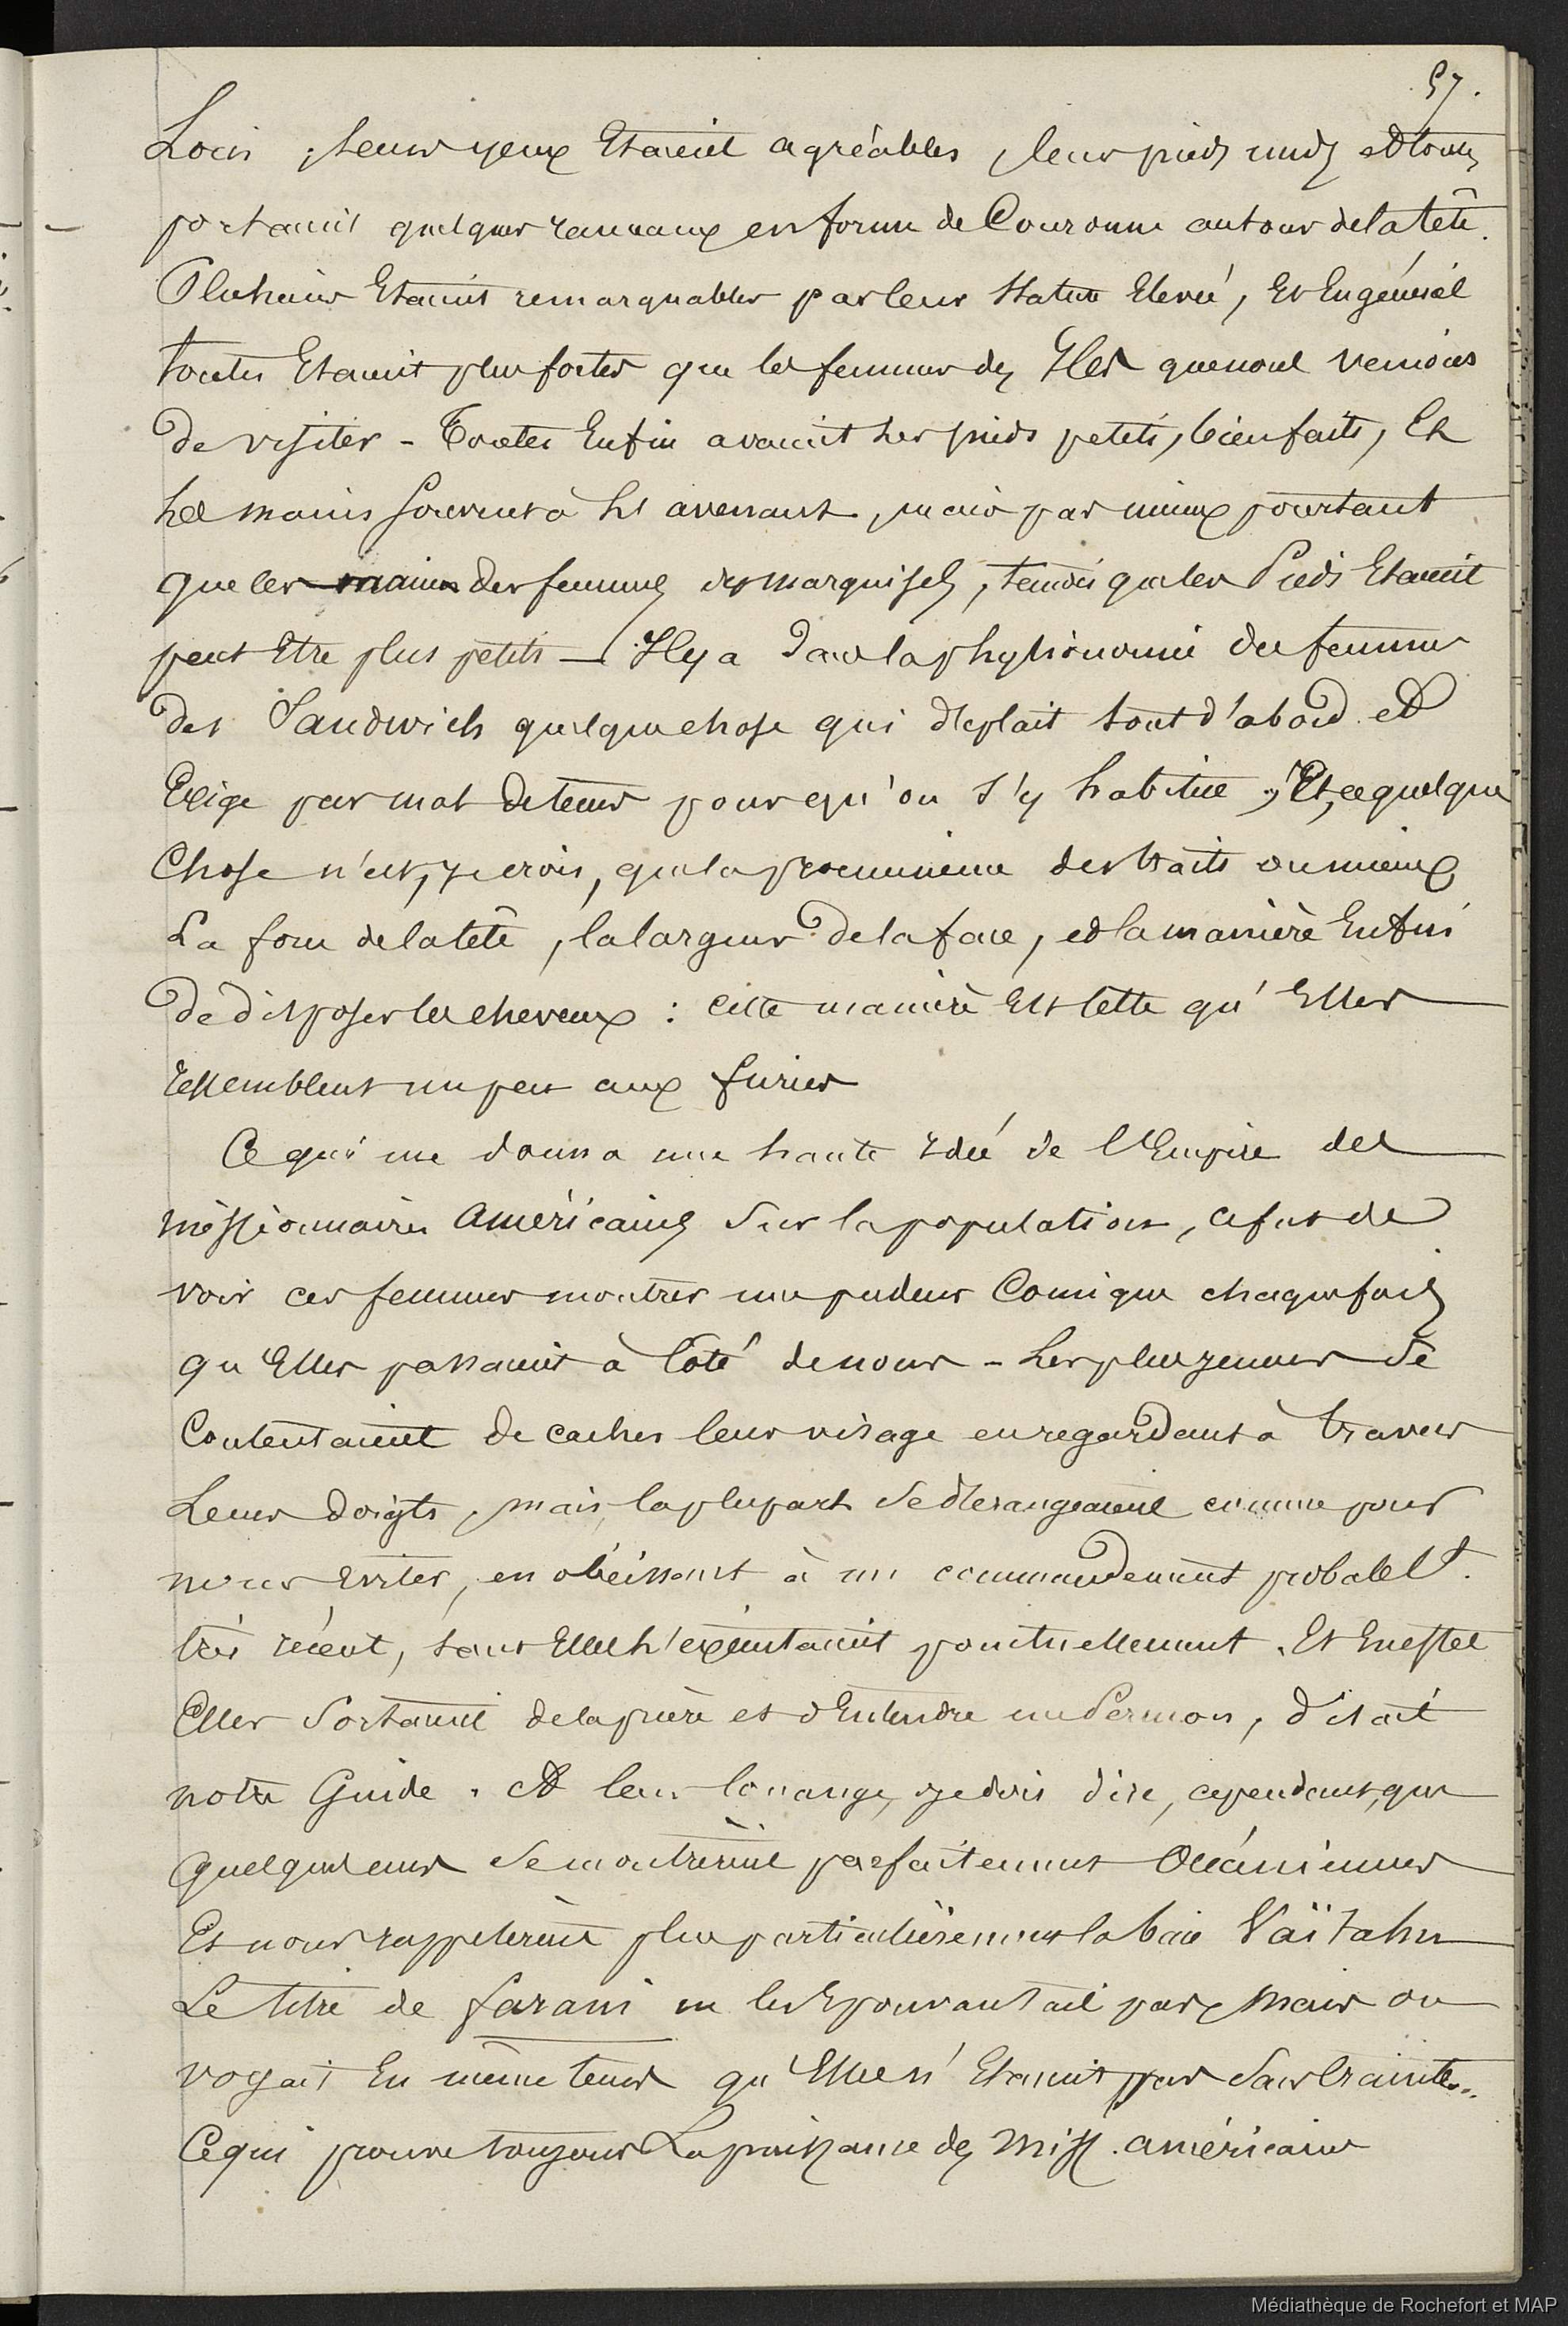 57.
Loin ; leurs yeux Etaient agréables, leurs pieds nuds et toutes
portaient quelques rameaux en forme de Couronne autour de la tête.
Plusieurs Etaient remarquables par leur Stature Elevée, Et En général
toutes Etaient plus fortes que les femmes des Iles que nous venions
de visiter - Toutes Enfin avaient les pieds petits, bien faits, Et
les mains souvent à l'avenant, mais pas mieux pourtant
que les mains des femmes des marquises, tandis que les Pieds Etaient
peut Etre plus petits — Il y a Dans la physionomie des femmes
des Sandwich quelque chose qui déplait tout d'abord et
Exige pas mal de tems pour qu'on s'y habitue ; Et, ce quelque
Chose n'est, je crois, que la proeminence des traits ou mieux
La forme de la tête, la largeur de la face, et la manière Enfin
De disposer les cheveux : cette manière Est telle qu'Elles
ressemblent un peu aux furies
Ce qui me donna une haute Idée de l'Empire des
missionnaires Américains Sur la population, ce fut de
voir ces femmes montrer une pudeur Comique chaque fois
qu'Elles passaient à Coté de nous - Les plus jeunes se
Contentaient de cacher leur visage en regardant à travers
Leurs doigts, mais, la plupart se dérangeaient comme pour
nous eviter, en obéissant à un commandement probablet.
très récent, tant Elles l'exécutaient ponctuellement. Et En effet
Elles Sortaient de la prière et d'Entendre un Sermon, disait
notre Guide. A leur louange, je dois dire, cependant, que
quelques unes se montrèrent parfaitement Océaniennes
Et nous rappelèrent plus particulièrement la baie Vaïtahu
Le titre de farani ne les Epouvantait pas, mais on
voyait En même tems qu'Elles n'Etaient pas Sans Crainte..
Ce qui prouve toujours La puissance des Miss. américains
Médiathèque de Rochefort et MAP